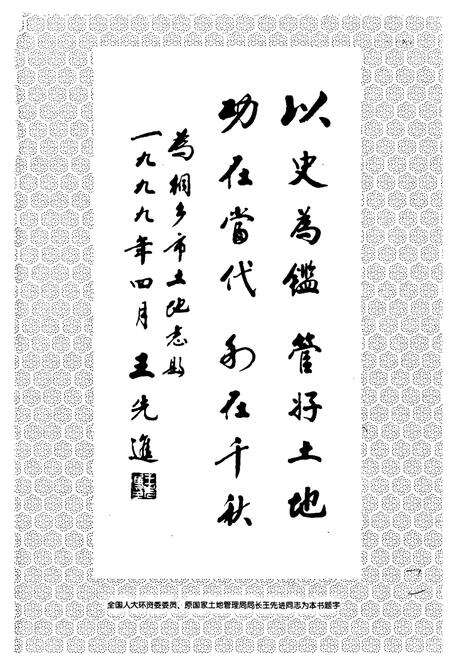 以史為鑑 管好土地
功在當代 利在千秋
為桐乡市土地志题
一九九九年四月 王先進
全国人大环资委委员、原国家土地管理局局长王先进同志为本书题字